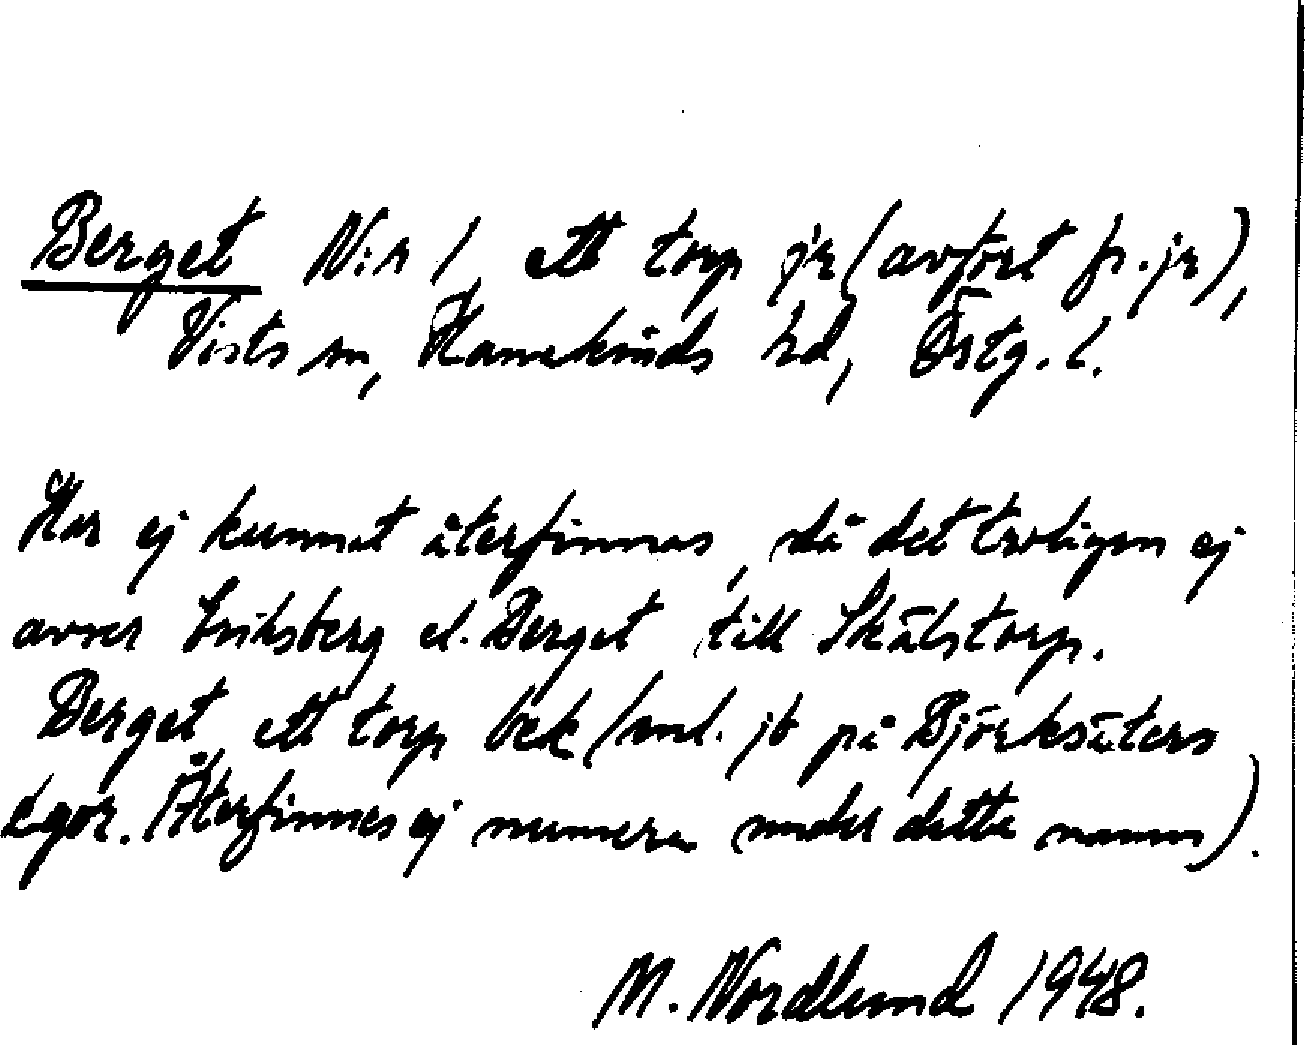 Berget N:r 1, ett torp jr (avfört fr. jr),
Vists sn, Hanekinds hd, Östg. l.
Har ej kunnat återfinnas, då det troligen ej
avser Eriksberg el. Berget till Skålstorp.
Berget, ett torp bek (enl. jb på Björksäters
ägor. Återfinnes ej numera under detta namn).
M. Nordlund 1948.